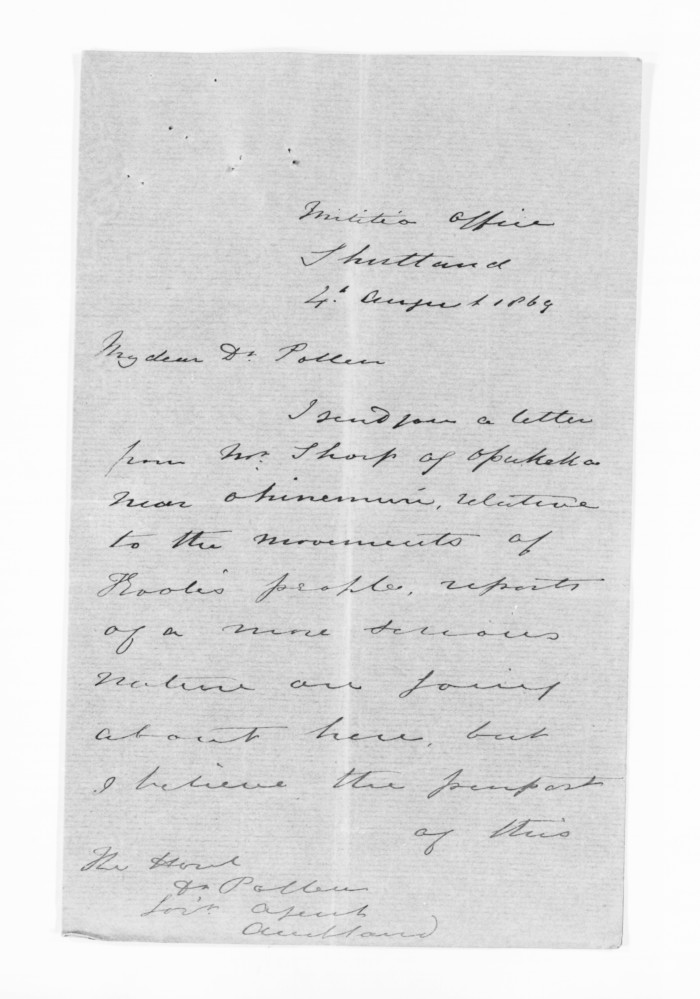 Militia Office
Shortland
4th August 1869
My dear Dr Pollen
I send you a letter
from Mr Thorp of Opukeko
near Ohinemuri, relative
to the movements of
Kooti's people, reports
of a more serious
nature are going
about here, but
I believe the purport
of this
The Honl
Dr Pollen
Govt Agent
Auckland